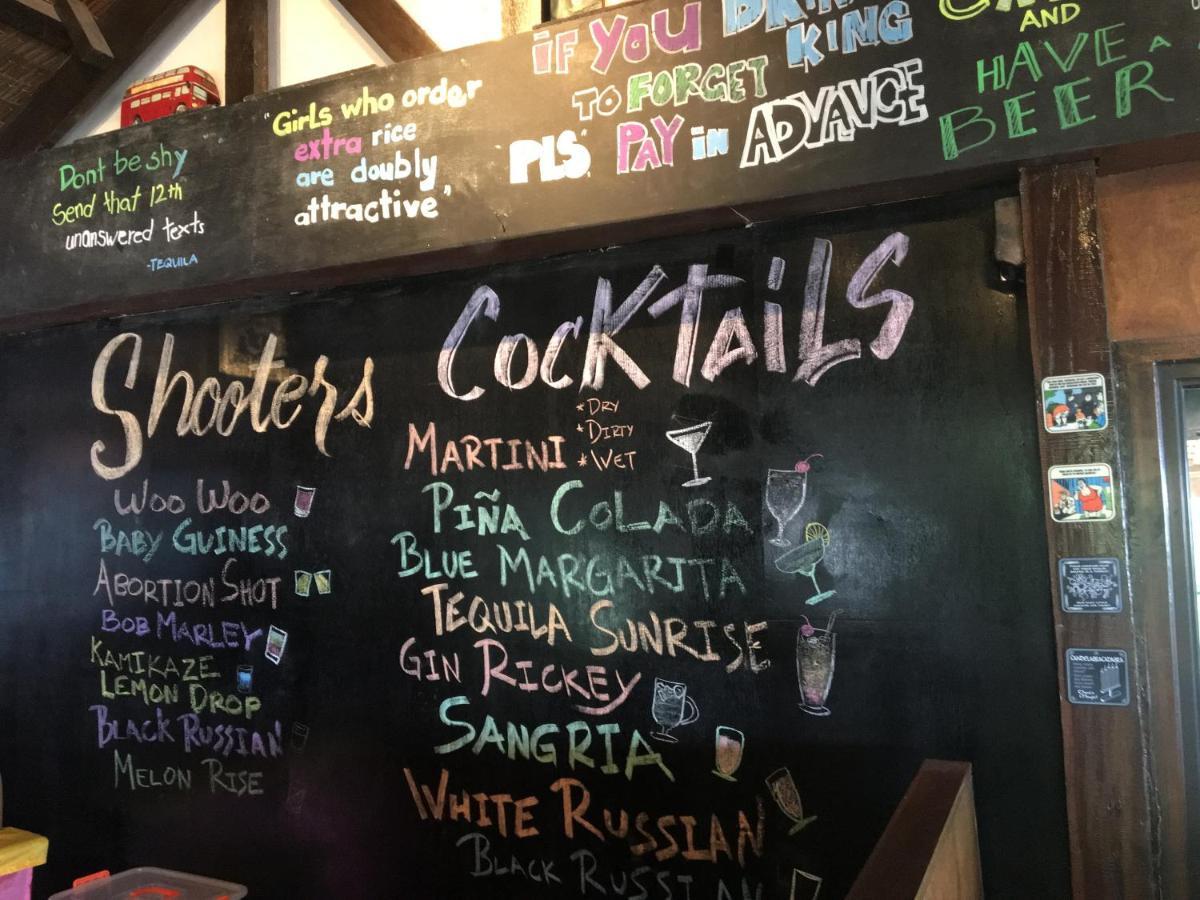 Dont be shy
Send that 12th
unanswered texts
-TEQUILA
"Girls who order
extra rice
are doubly
attractive"
iF YOU DRIN
KING
TO FORGET
PLS" PAY iN ADVANCE
AND
HAVE A
BEER
Shooters
WOO WOO
BABY GUINESS
ABORTION SHOT
BOB MARLEY
KAMIKAZE
LEMON DROP
BLACK RUSSIAN
MELON RISE
COCKTAiLS
MARTINI *DRY
*DIRTY
*WET
PIÑA COLADA
BLUE MARGARITA
TEQUILA SUNRISE
GIN RICKEY
SANGRIA
WHITE RUSSIAN
BLACK RUSSIAN